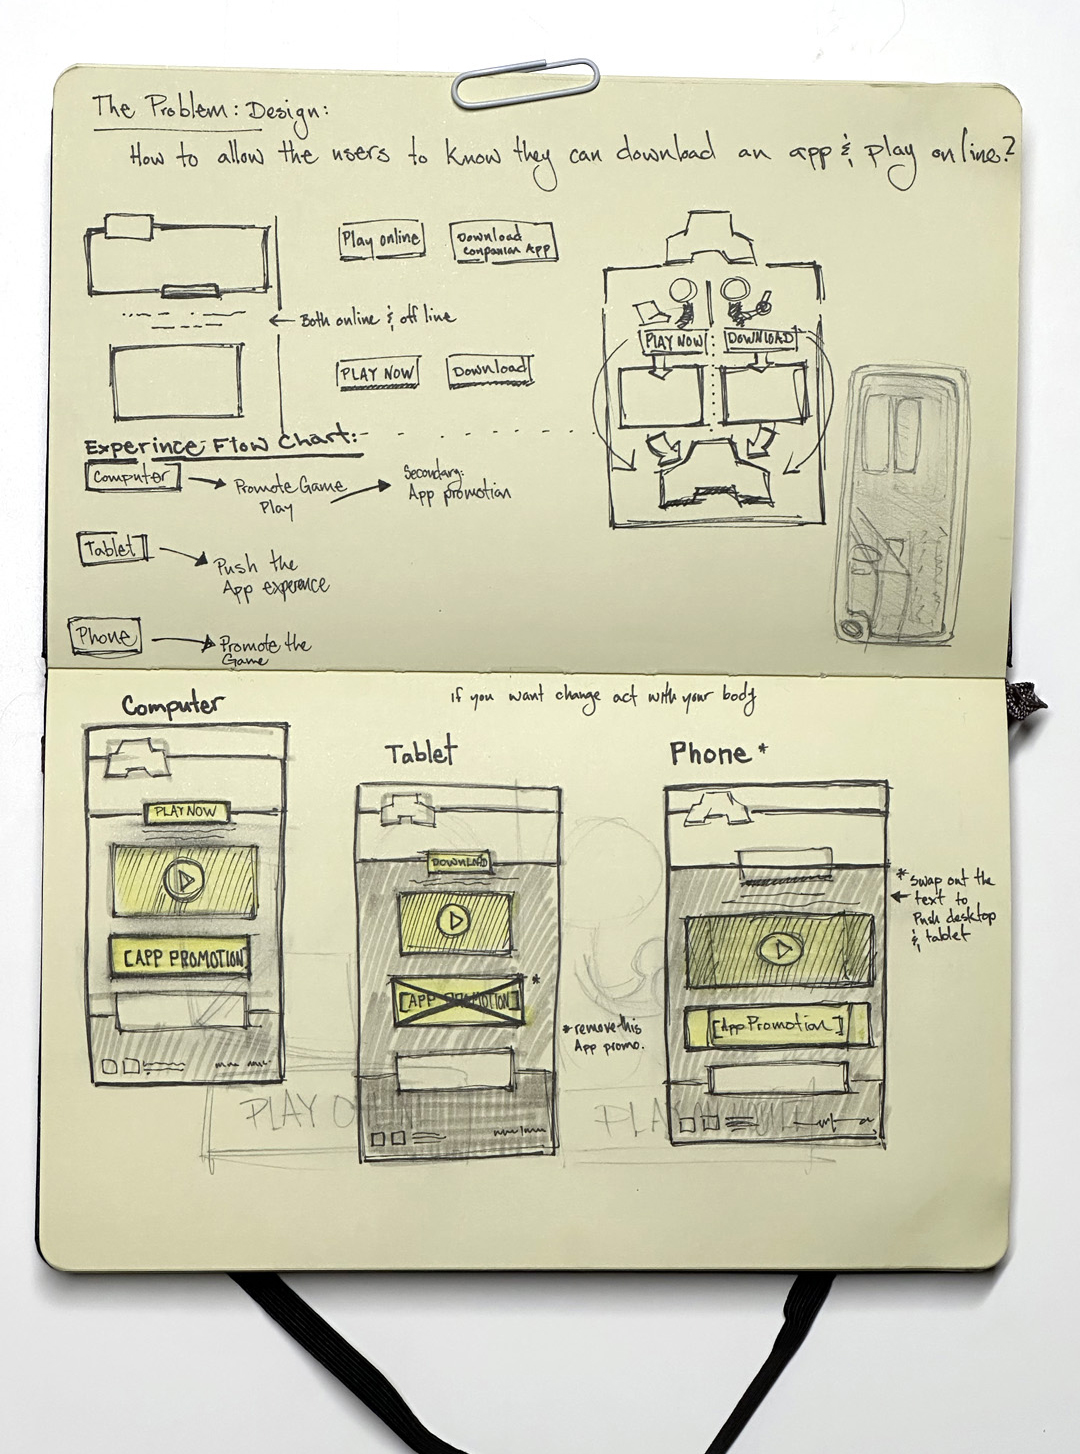 The Problem: Design:
How to allow the users to know they can download an app & play online?
Play online
Download
Companion App
← Both online & off line
PLAY NOW
Download
PLAY NOW
DOWNLOAD
Experince Flow Chart:
Computer
Promote Game
Play
Secondary:
App promotion
Tablet
Push the
App experence
Phone
Promote the
Game
if you want change act with your body
Computer
PLAY NOW
[APP PROMOTION]
Tablet
DOWNLOAD
[APP PROMOTION]
*
* remove this
App promo.
Phone *
[App Promotion]
* swap out the
text to
Push desktop
& tablet
PLAY
PLAY